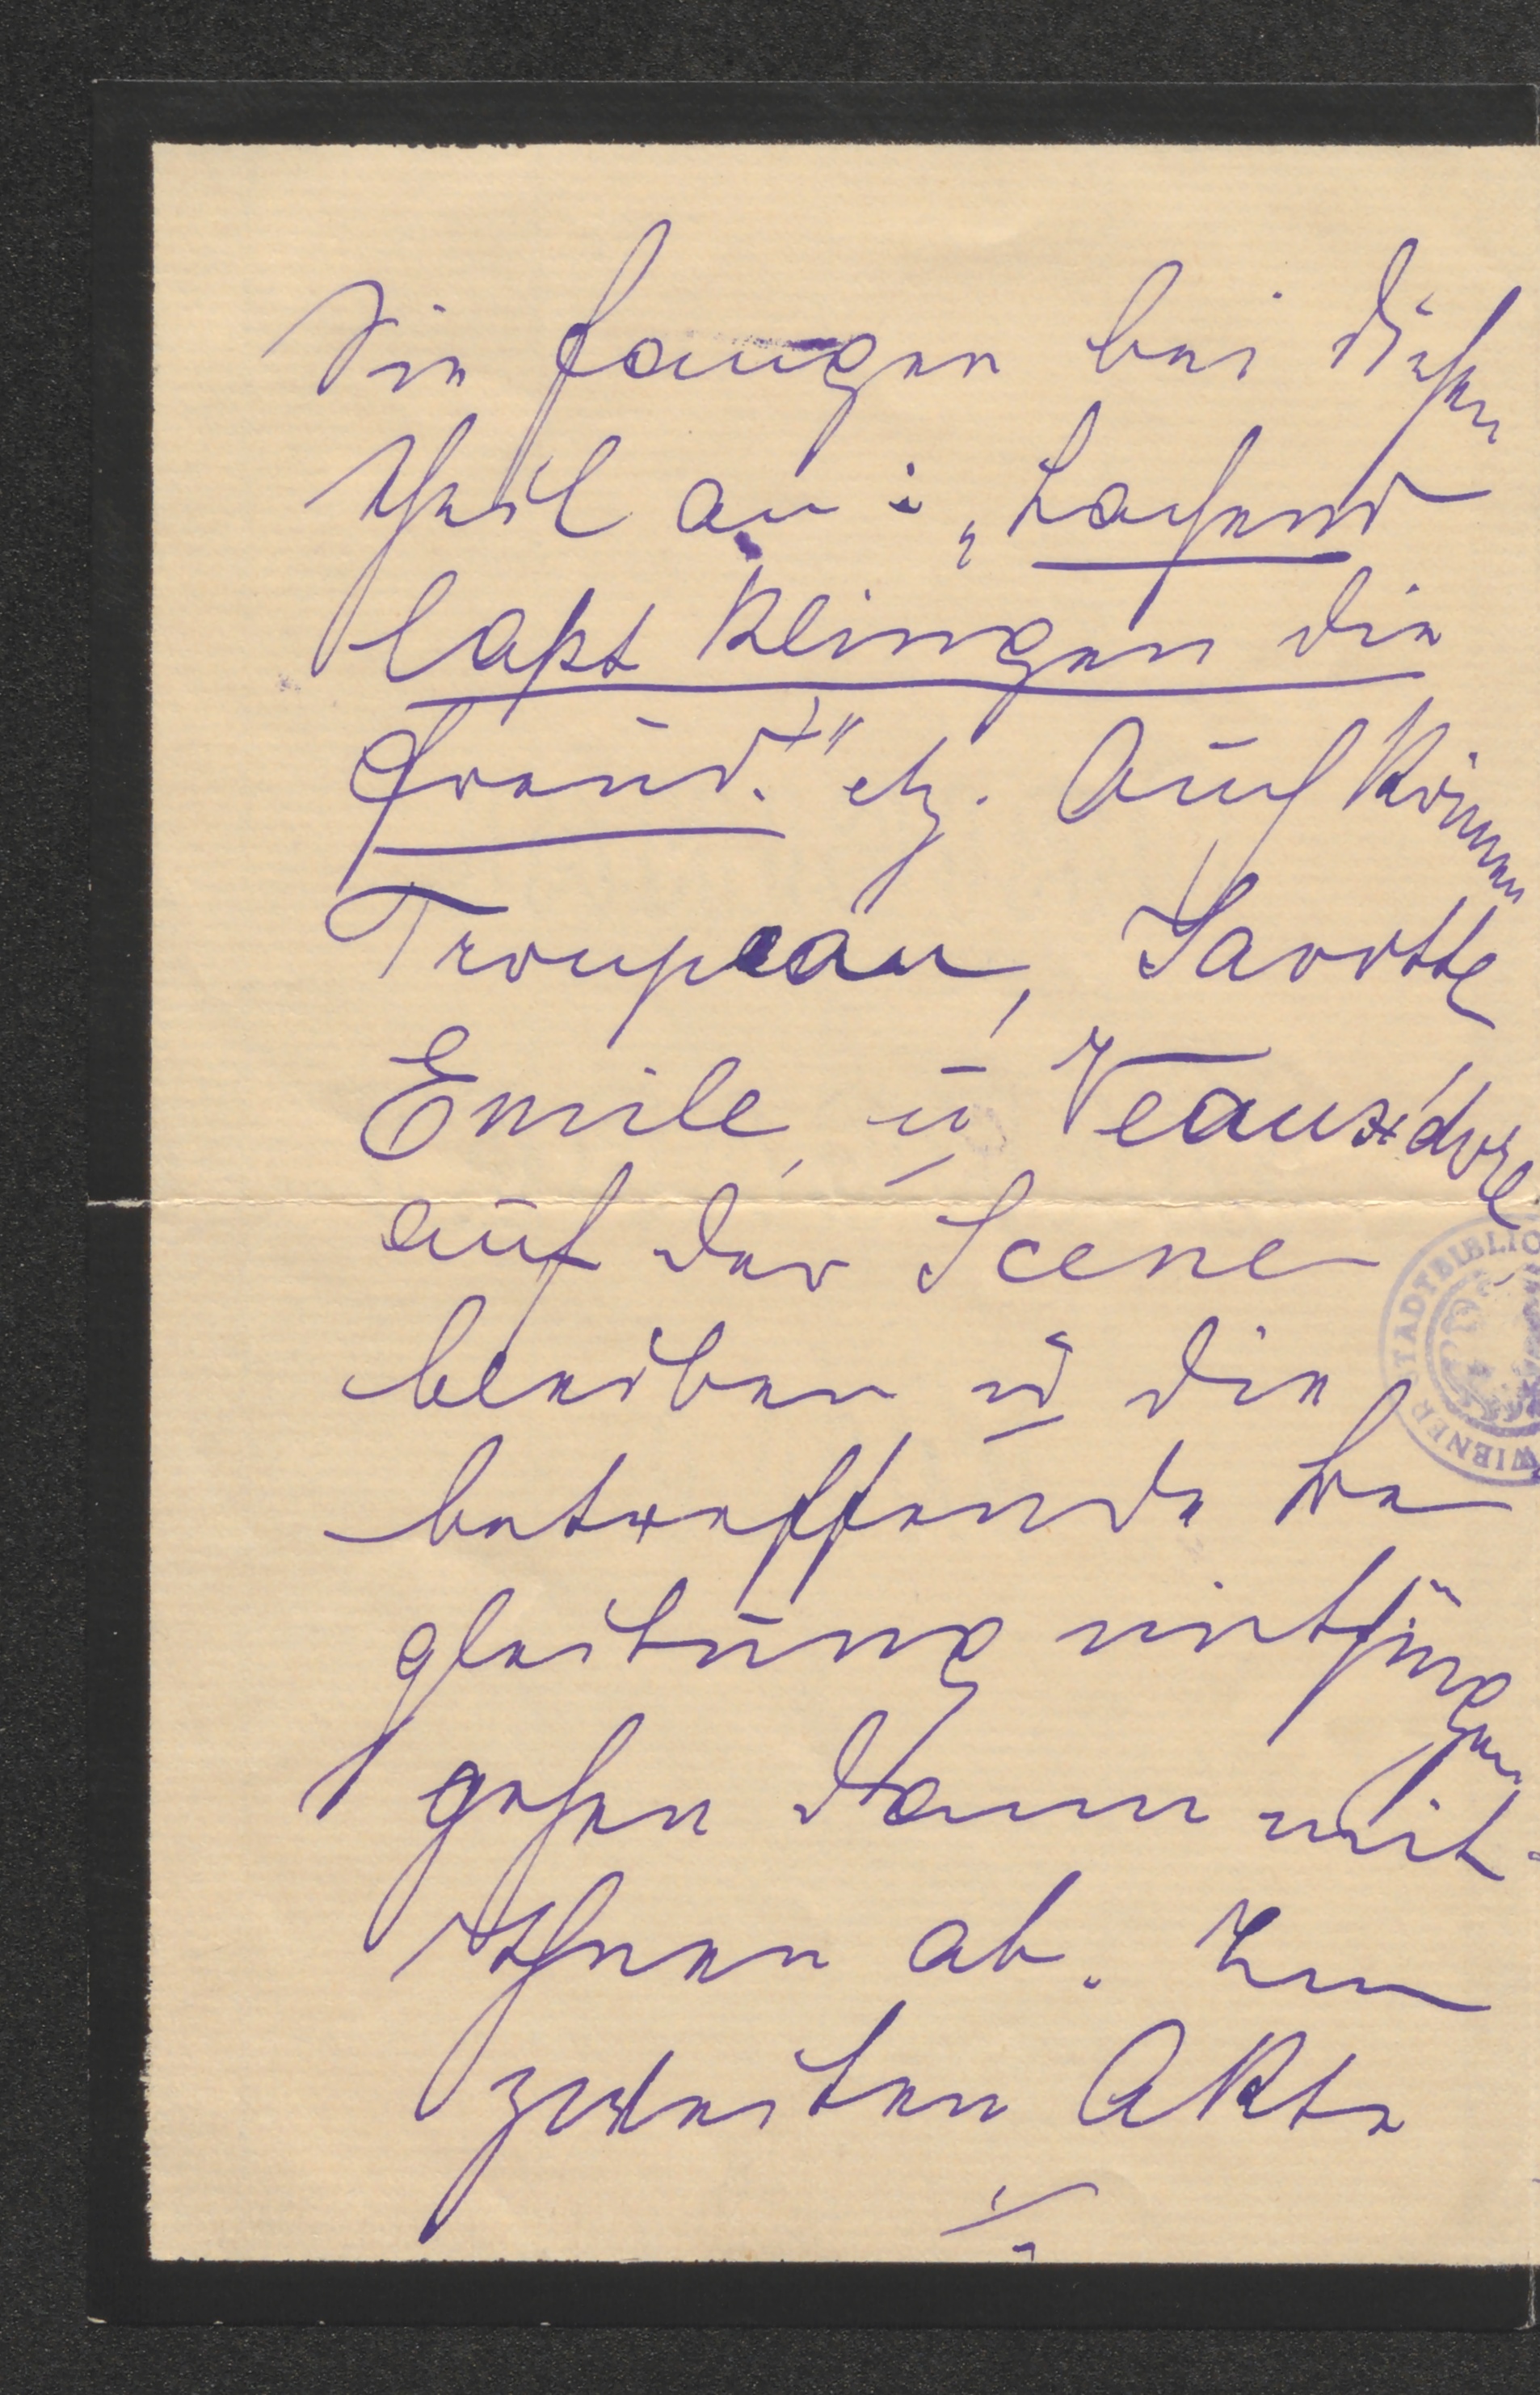 Sie fangen bei diesem
Theil an: „Lachend
lasst klingen die
Freud." etz. Auch können
Troupeau, Javotte
Emile, u Veauxdore
auf der Scene
bleiben u die
betreffende Be
gleitung mitsingen
gehen dann mit
Ihnen ab. Zum
zweiten Akte
./.
WIENER STADTBIBLIO